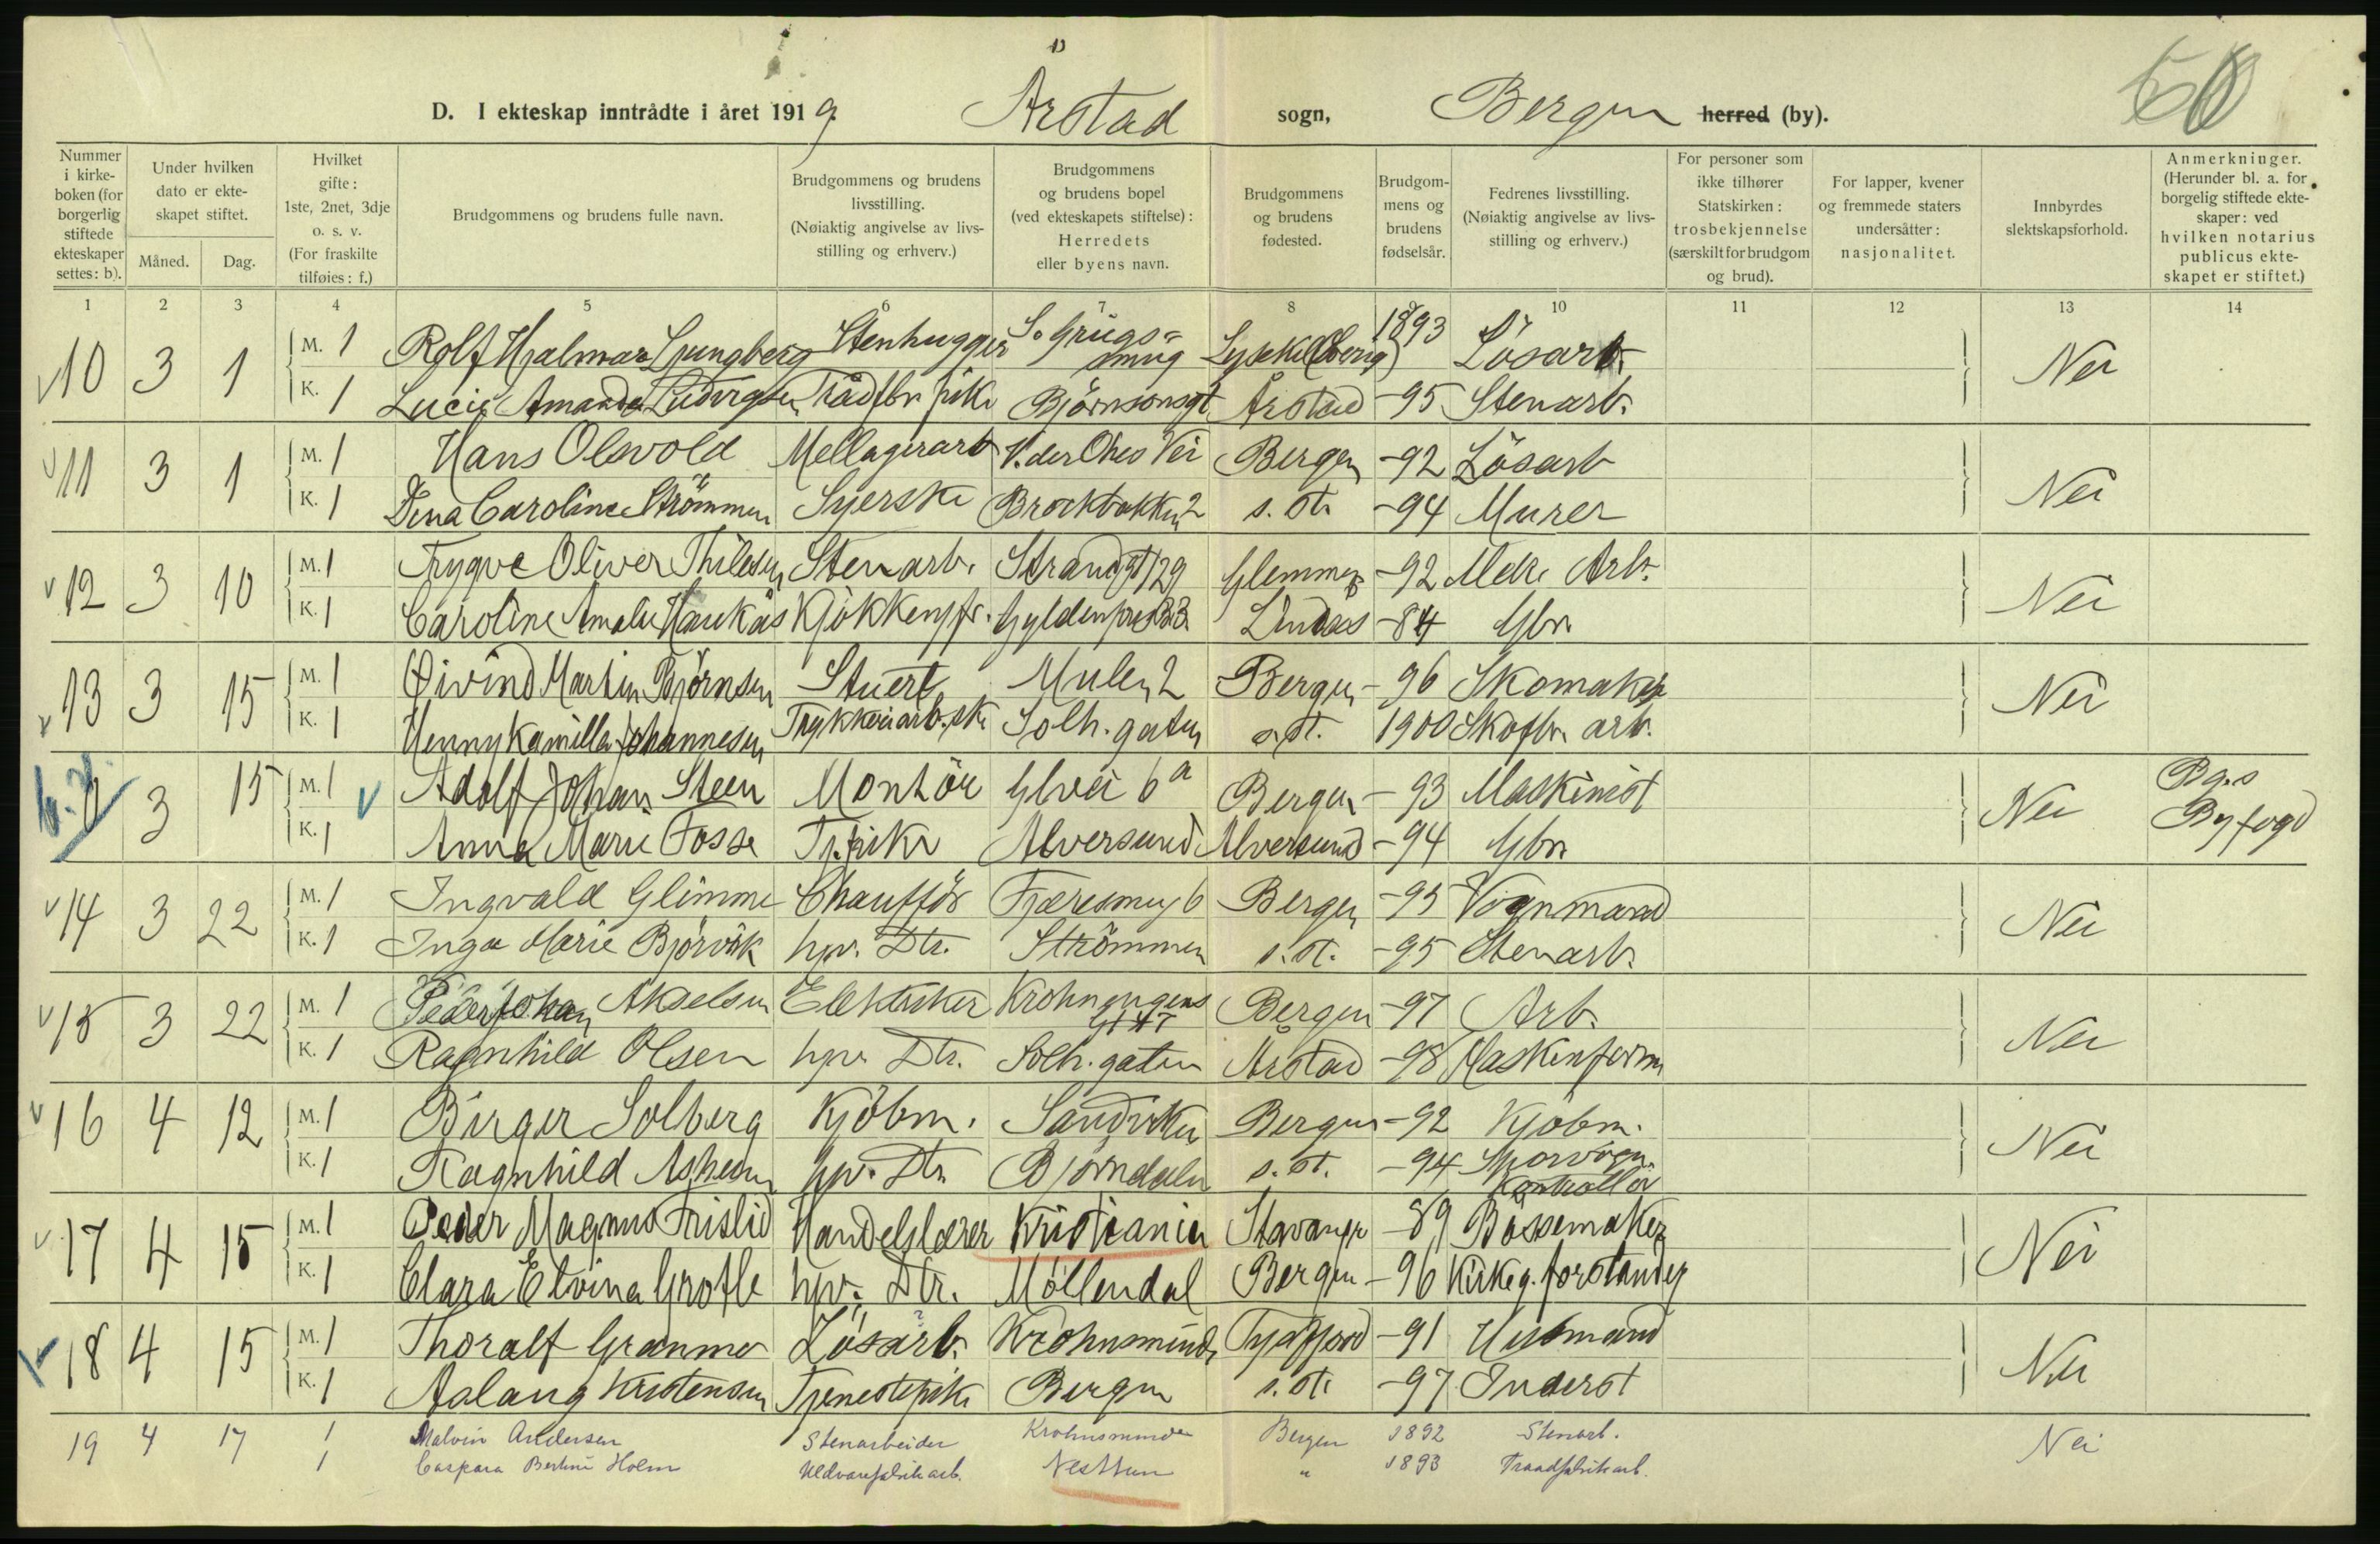 D. I ekteskap inntrådte i året 1919 Årstad sogn, Bergen herred (by).
Nummer i kirkeboken (for borgerlig stiftede ekteskaper settes: b).
Under hvilken dato er ekteskapet stiftet.
Måned.
Dag.
Hvilket gifte: 1ste, 2net, 3dje o. s. v. (For fraskilte tilføies: f.)
Brudgommens og brudens fulle navn.
Brudgommens og brudens livsstilling. (Nøiaktig angivelse av livsstilling og erhverv.)
Brudgommens og brudens bopel (ved ekteskapets stiftelse): Herredets eller byens navn.
Brudgommens og brudens fødested.
Brudgommens og brudens fødselsår.
Fedrenes livsstilling. (Nøiaktig angivelse av livsstilling og erhverv.)
For personer som ikke tilhører Statskirken: trosbekjennelse (særskilt for brudgom og brud).
For lapper, kvener og fremmede staters undersåtter: nasjonalitet.
Innbyrdes slektskapsforhold.
Anmerkninger. (Herunder bl. a. for borgelig stiftede ekteskaper: ved hvilken notarius publicus ekteskapet er stiftet.)
1 2 3 4 5 6 7 8 9 10 11 12 13 14
10 3 1 M. 1 Rolf Hjalmar Ljungberg Stenhugger Lysekil 1893 Løsarb. Nei
K. 1 Lucie Amanda Ludvigsen Trådfbr. pike Bjørnsonsgt Årstad -95 Stenarb.
11 3 1 M. 1 Hans Olsvold V. der Ohes Vei Bergen -92 Løsarb Nei
K. 1 Dina Caroline Strømmen Syerske s. st. -94 Murer
12 3 10 M. 1 Trygve Oliver Thilesen Stenarb. Strandgt 129 Glemmen -92 Mek. Arb. Nei
K. 1 Caroline Amalie Haukås Kjøkkenpr. Lindås -84 Gbr.
13 3 15 M. 1 Øivind Martin Bjørnsen Stuert Mulen 2 Bergen -96 Skomaker Nei
K. 1 Henny Kamilla Johannesen Trykkeriarb.ske Solh. gaten s. st. 1900 Skofbr. arb.
3 15 M. 1 Adolf Johan Steen Montør 6a Bergen -93 Maskinist Nei Bg.s Byfogd
K. 1 Anna Marie Fosse Tj. pike Alversund Alversund -94 Gbr.
14 3 22 M. 1 Ingvald Glimme Chauffør Fjæresmug 6 Bergen -95 Vognmand Nei
K. 1 Inga Marie Bjørvik hjv. Dtr. Strømmen s. st. -95 Stenarb.
15 3 22 M. 1 Peder Johan Akselsen Elektriker Krohnengens Bergen -97 Arb. Nei
K. 1 Ragnhild Olsen hjv. Dtr. Solh. gaten Årstad -98 Maskinform
16 4 12 M. 1 Birger Solberg Kjøbm. Sandviken Bergen -92 Kjøbm. Nei
K. 1 Ragnhild hjv. Dtr. Bjørndalen s. st. -94 Sporvogn. Kontrollør
17 4 15 M. 1 Peder Magnus Frislid Handelslærer Kristiania Stavanger -89 Bøssemaker Nei
K. 1 Clara Elvina Grotle hjv. Dtr. Møllendal Bergen -96 Kirkeg. forstander
18 4 15 M. 1 Thoralf Granmo Løsarb. Krohnsminde Tysfjord -91 Husmand Nei
K. 1 Aslaug Kristensen Tjenestepike Bergen s. st. -97 Inderst
19 4 17 1 Malvin Andersen Stenarbeider Krohnsminde Bergen 1892 Stenarb. Nei
1 Caspara Bertine Holm Uldvarefabrikarb. Nesttun " 1893 Traadfabrikarb.